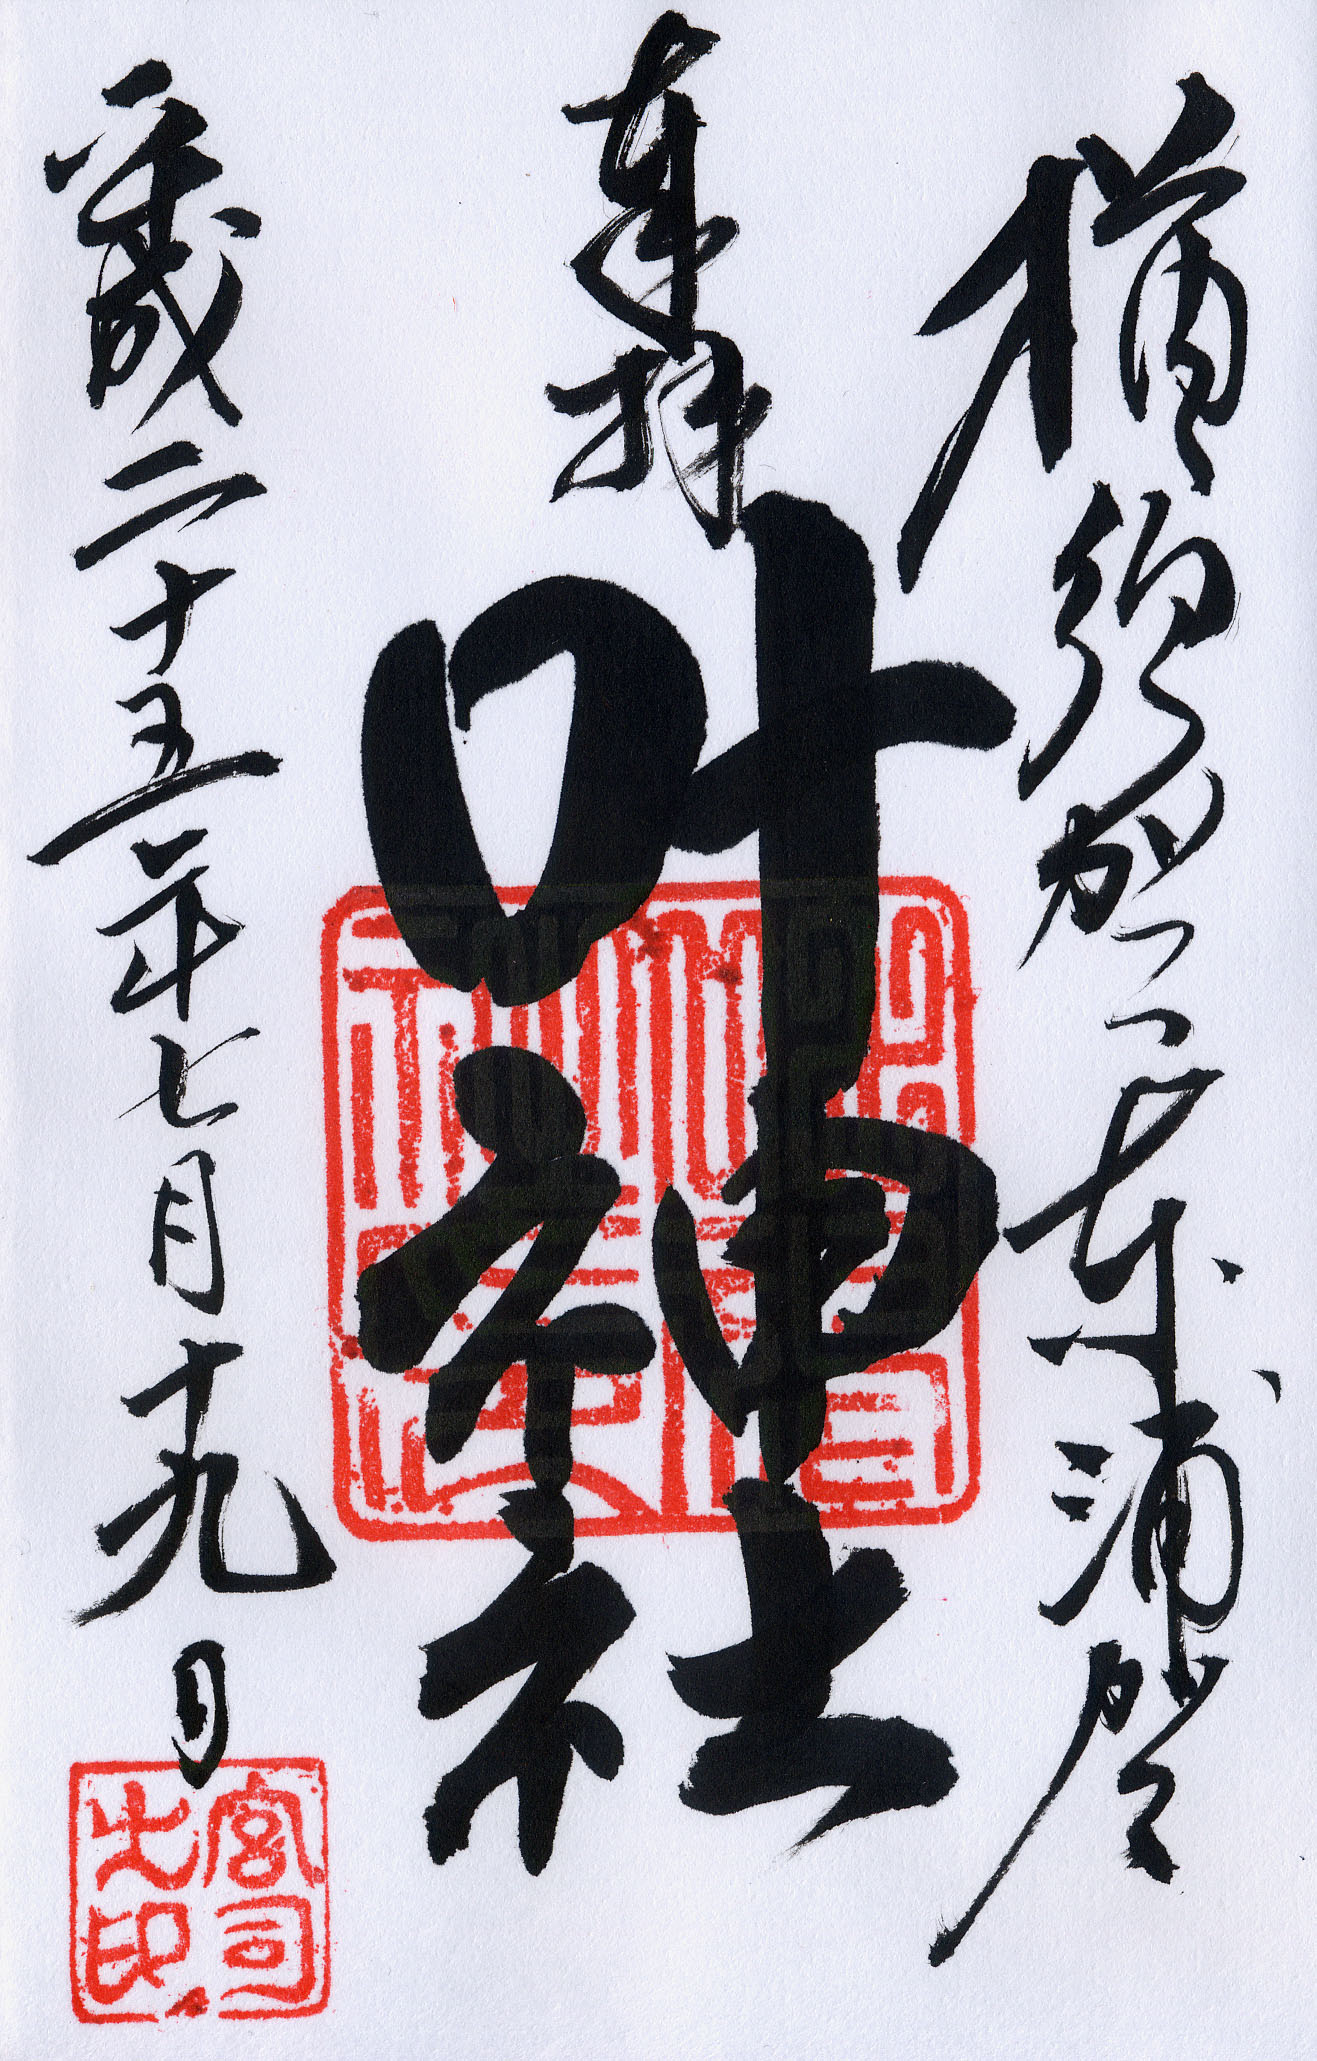 横須賀市東浦賀
奉拝
叶神社
平成二十五年七月十九日
宮司
之印